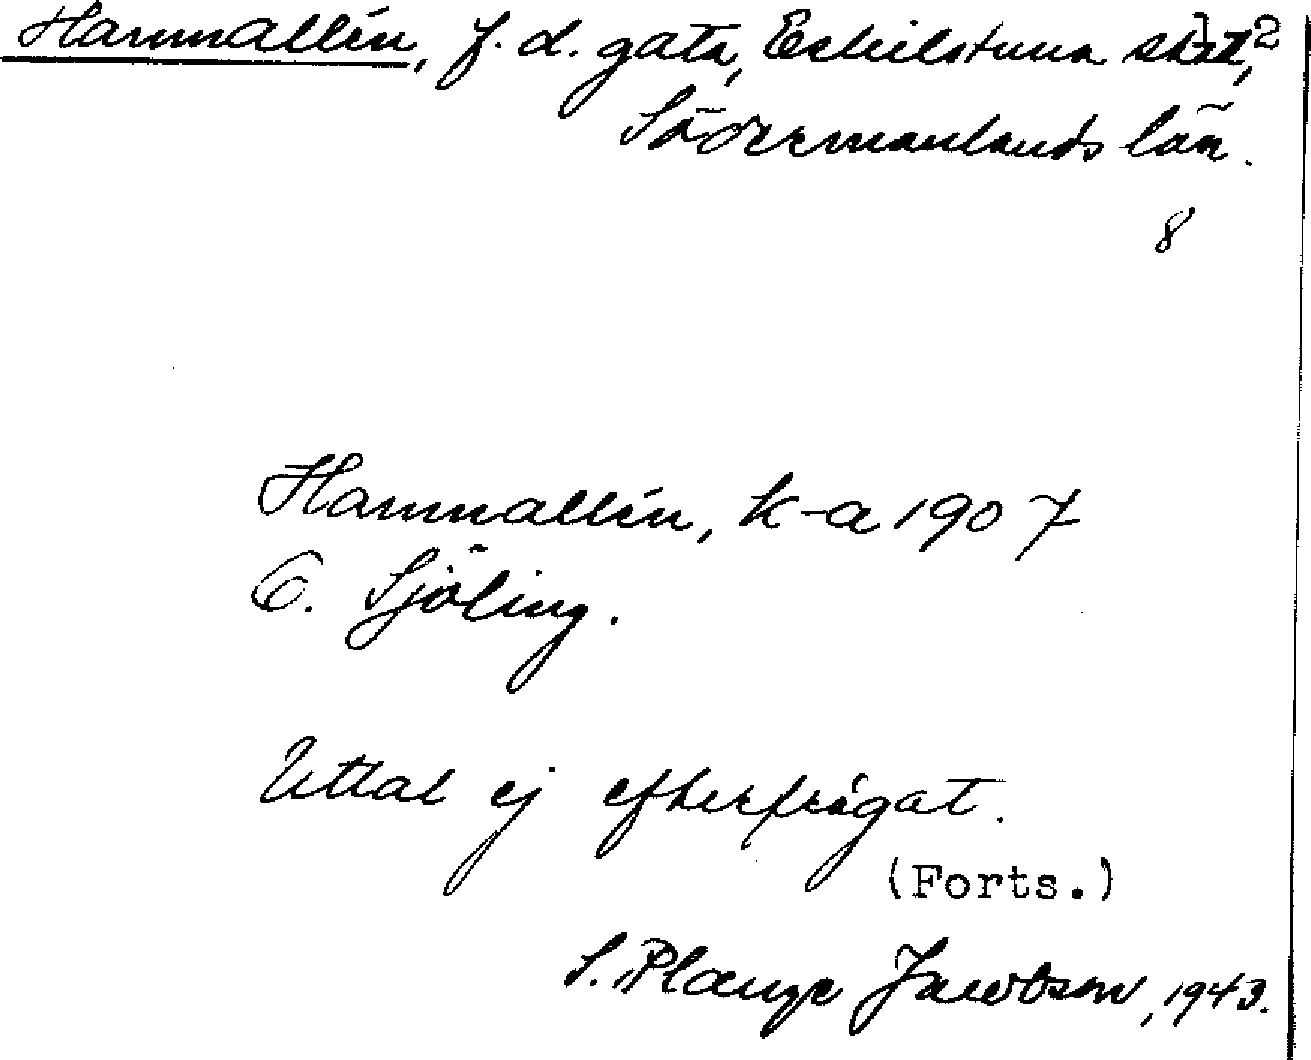 Hamnallén, f. d. gata, Eskilstuna stad, 2
Södermanlands län.
8
Hamnallén, k-a 1907
C. Sjöling.
Uttal ej efterfrågat.
(Forts.)
S. Plange Jacobson, 1943.